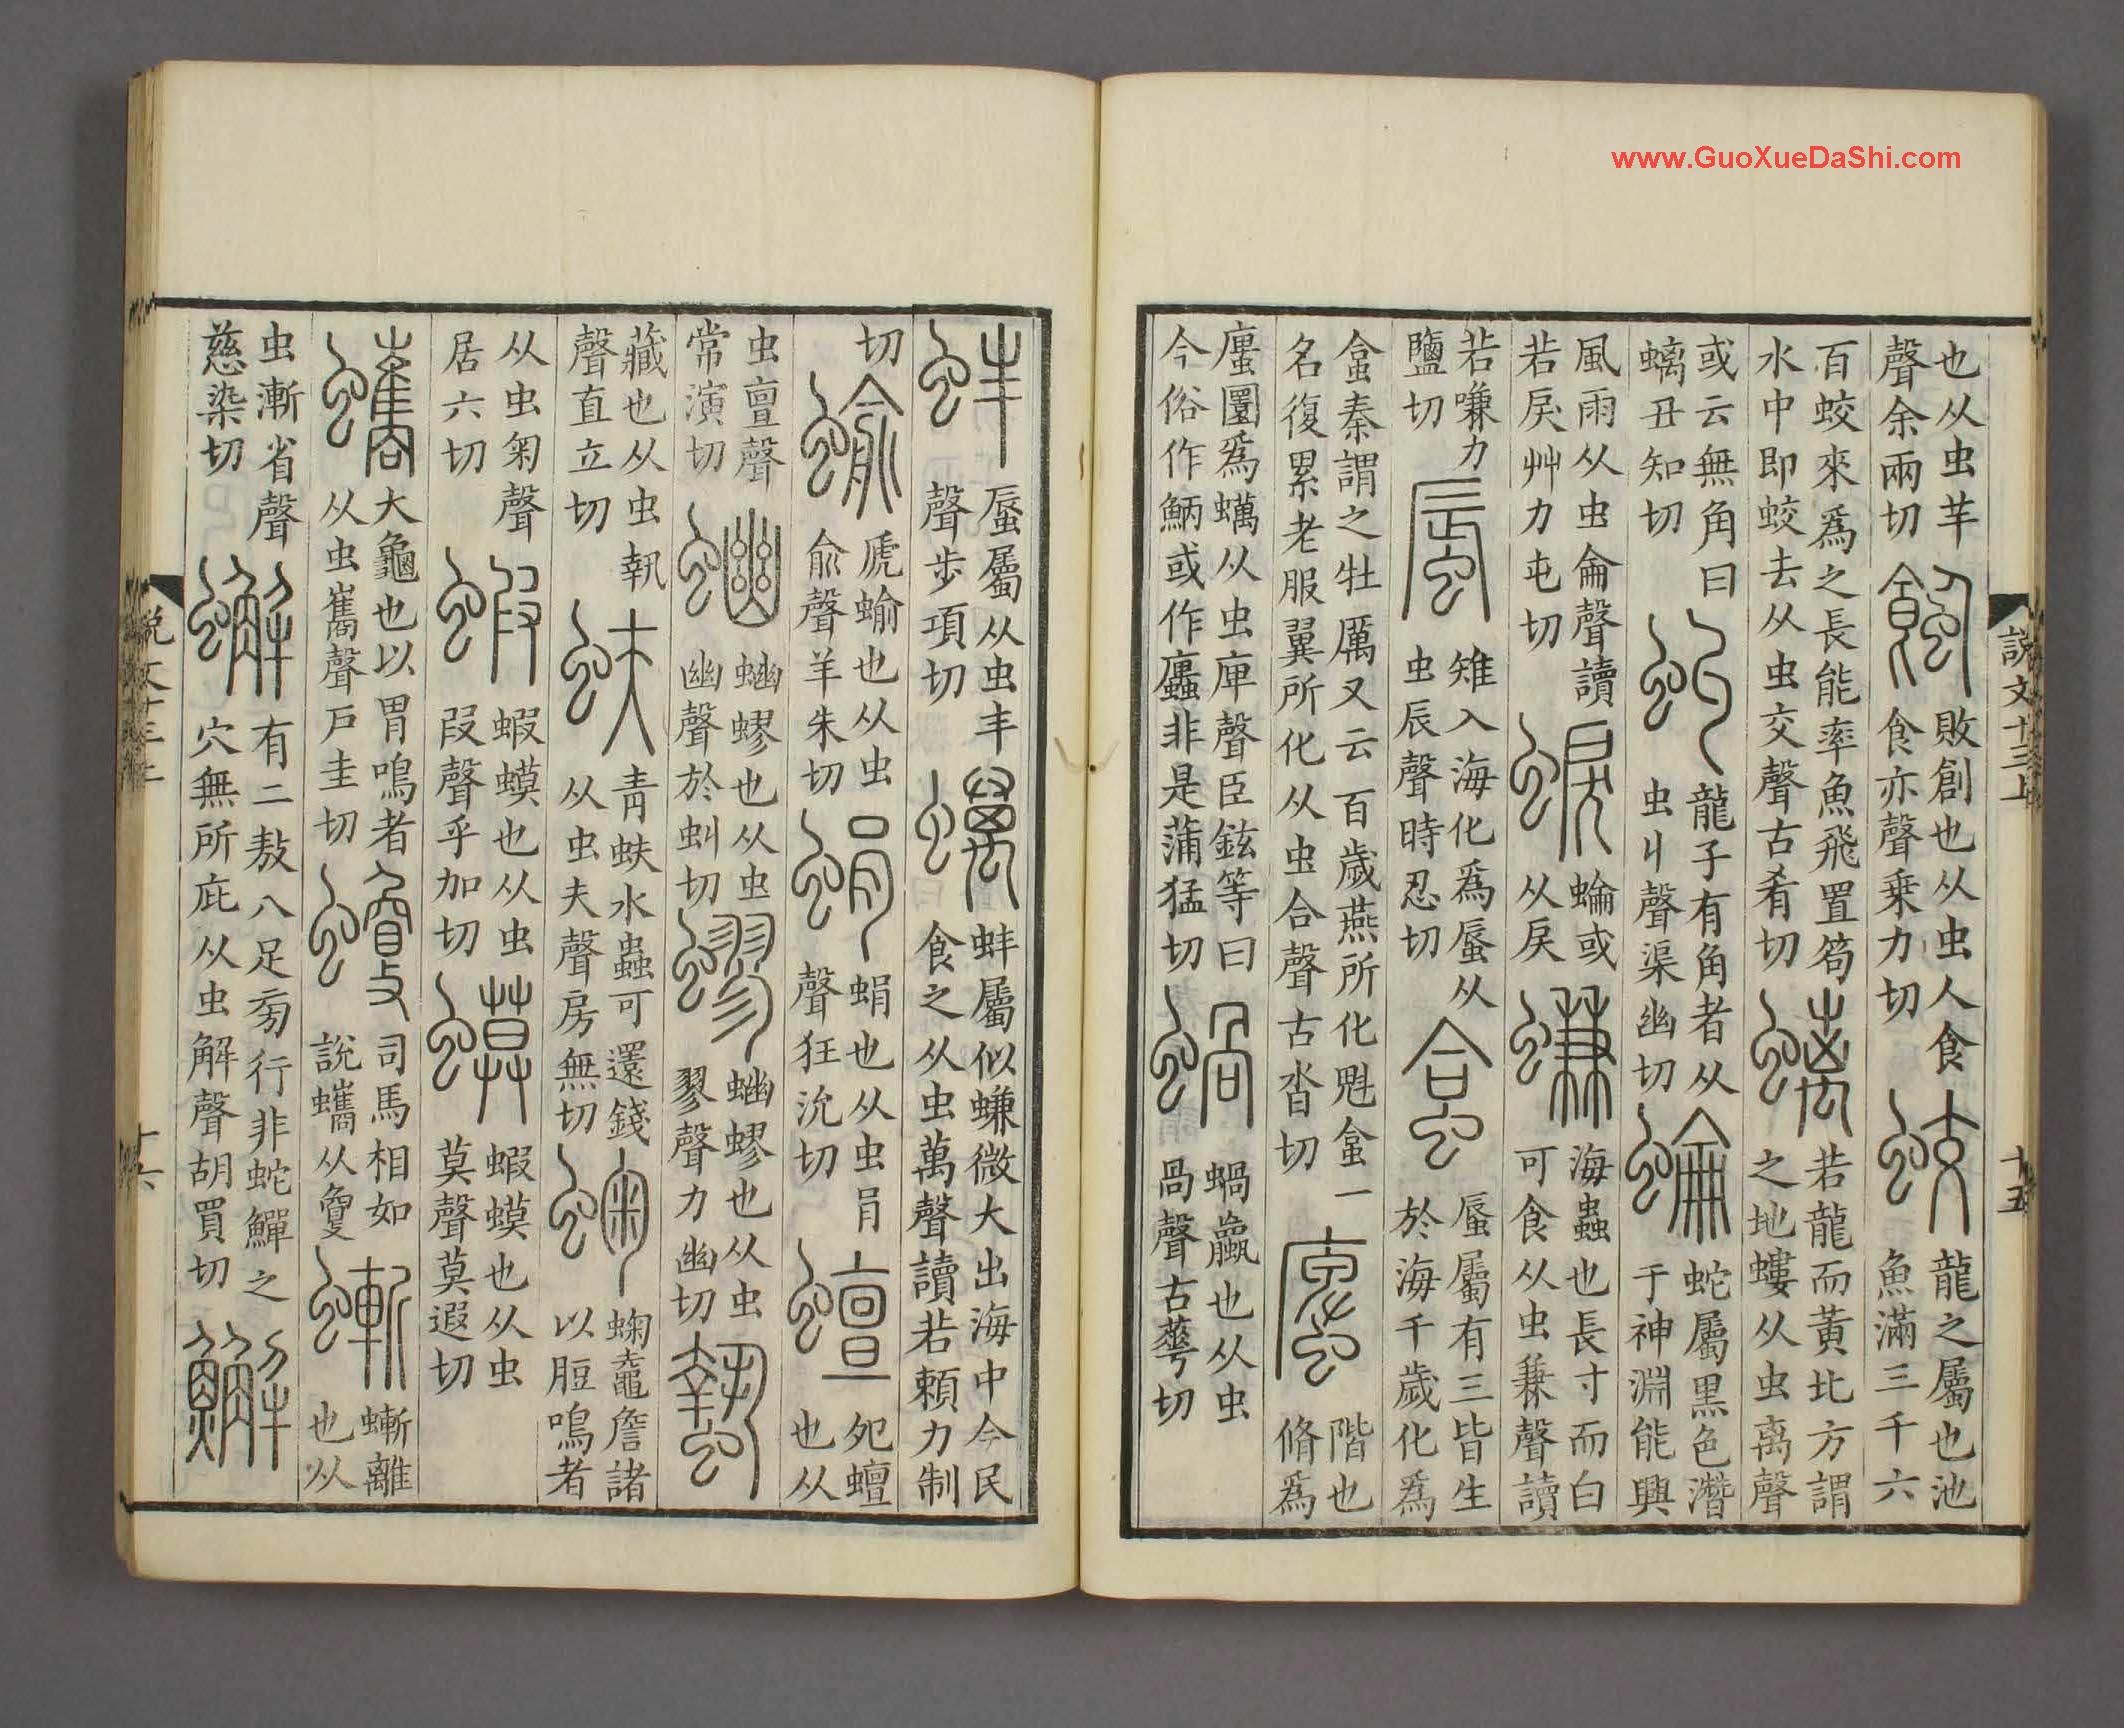 www.GuoXueDaShi.com
說文十三上 十五
也从虫羊聲余兩切 蝕 敗創也从虫人食食亦聲乗力切 蛟 龍之屬也池魚滿三千六
百蛟來爲之長能率魚飛置笱水中即蛟去从虫交聲古肴切 螭 若龍而黃北方謂之地螻从虫离聲
或云無角曰螭丑知切 虯 龍子有角者从虫丩聲渠幽切 蜦 蛇屬黑色潛于神淵能興
風雨从虫侖聲讀若戾艸力屯切 蜧 蜦或从戾 螊 海蟲也長寸而白可食从虫兼聲讀
若嗛力鹽切 蜃 雉入海化爲蜃从虫辰聲時忍切 𧊧 蜃屬有三皆生於海千歲化爲
𧊧秦謂之牡厲又云百歲燕所化魁𧊧一名復累老服翼所化从虫合聲古沓切 螷 階也脩爲
螷圜爲蠇从虫庳聲臣鉉等曰今俗作或作非是蒲猛切 蝸 蝸蠃也从虫咼聲古華切
蚌 蜃屬从虫丰聲步項切 蠇 蚌屬似螊微大出海中今民食之从虫萬聲讀若賴力制
切 蝓 虒蝓也从虫俞聲羊朱切 蜎 蜎也从虫肙聲狂沇切 蟺 夗蟺也从
虫亶聲常演切 蟉也从虫幽聲於虯切 蟉 蟉也从虫翏聲力幽切 蟄
藏也从虫執聲直立切 蚨 青蚨水蟲可還錢从虫夫聲房無切 䗇 䗇鼀詹諸以脰鳴者
从虫匊聲居六切 蝦 蝦蟆也从虫叚聲乎加切 蟆 蝦蟆也从虫莫聲莫遐切
蠵 大龜也以胃鳴者从虫巂聲戶圭切 司馬相如說蠵从敻 螹 螹離也从
虫漸省聲慈染切 蠏 有二敖八足旁行非蛇鱓之穴無所庇从虫解聲胡買切 䲒
說文十三上 十六